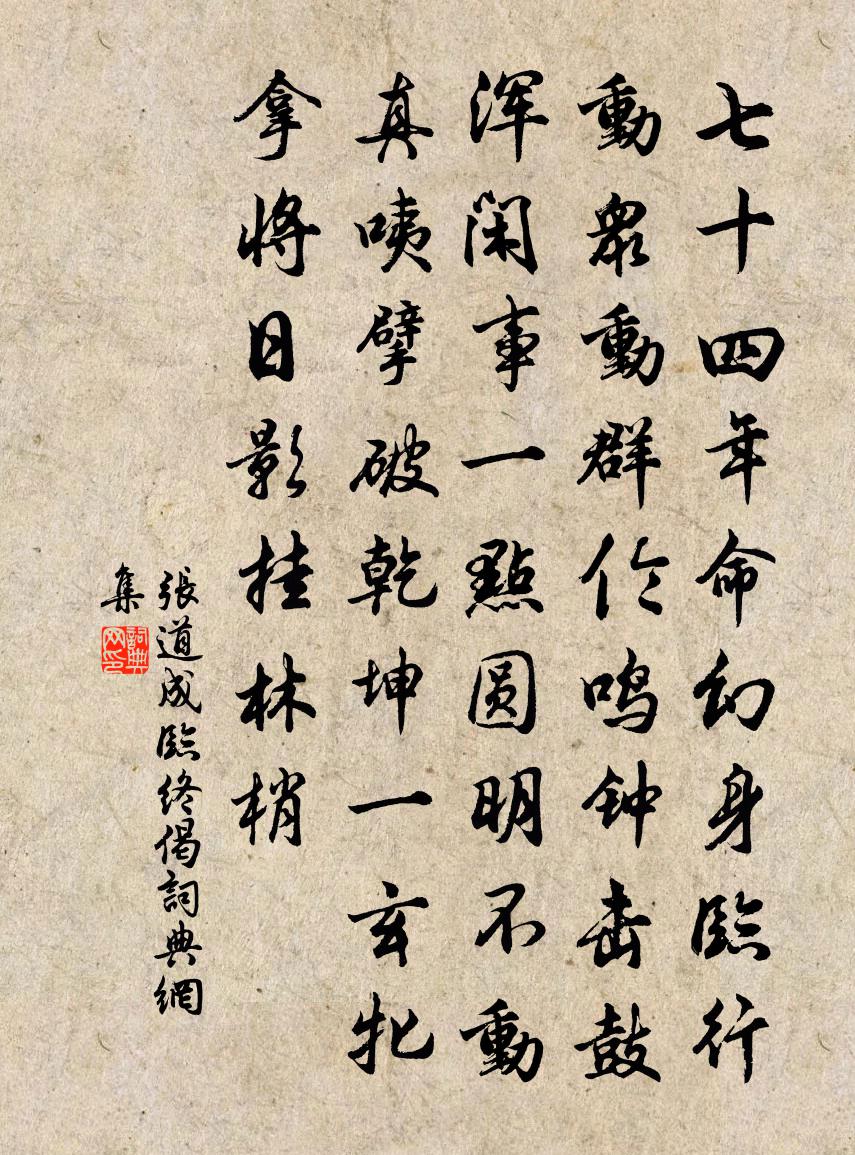 七十四年命幻身臨行
動眾動群伶鸣钟击鼓
浑闲事一點圆明不動
真咦擘破乾坤一玄牝
拿將日影挂林梢
張道成臨終偈詞典網
集
詞典网印